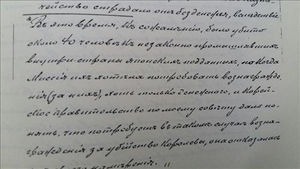 чейство страдало отъ безденежья,
Въ это время, къ сожалѣнію, было убито
около 40 человѣкъ незаконно промышлявшихъ
внутри страны японскихъ подданныхъ, но когда
Миссія ихъ хотѣла потребовать вознагражде-
нія (за нихъ), хоть только денежнаго, и Корей-
ское правительство по моему совѣту дало по-
нять, что потребуетъ въ такомъ случаѣ возна-
гражденія за убійство Королевы, она отказалась